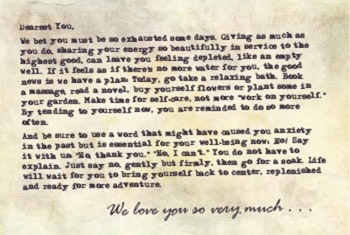 Dearest You,
We bet you must be so exhausted some days. Giving as much as
you do, sharing your energy so beautifully in service to the
highest good, can leave you feeling depleted, like an empty
well. If it feels as if there's no more water for you, the good
news is we have a plan: Today, go take a relaxing bath. Book
a massage, read a novel, buy yourself flowers or plant some in
your garden. Make time for self-care, not more "work on yourself."
By tending to yourself now, you are reminded to do so more
often.
And be sure to use a word that might have caused you anxiety
in the past but is essential for your well-being now. No! Say
it with us "No, thank you." "No, I can't." You do not have to
explain. Just say no, gently but firmly, then go for a soak. Life
will wait for you to bring yourself back to center, replenished
and ready for more adventure.
We love you so very much . . .